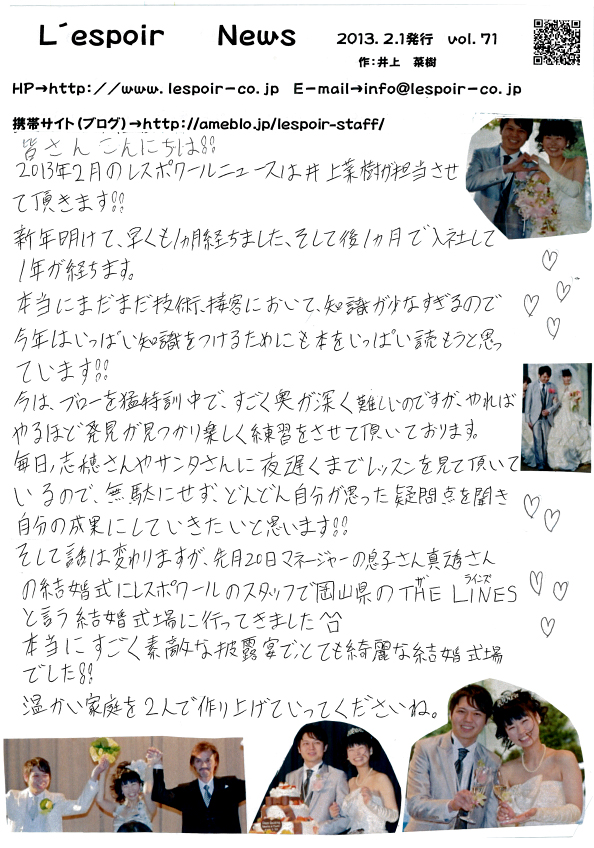 L´espoir News 2013. 2.1発行 vol. 71
作:井上 菜樹
HP→http://www.lespoir-co.jp E-mail→info@lespoir-co.jp
携帯サイト(ブログ)→http://ameblo.jp/lespoir-staff/
皆さんこんにちは!!
2013年2月のレスポワールニュースは井上菜樹が担当させ
て頂きます!!
新年明けて、早くも1カ月経ちました、そして後1カ月で入社して
1年が経ちます。
本当にまだまだ技術、接客において、知識が少なすぎるので
今年はいっぱい知識をつけるためにも本をいっぱい読もうと思っ
ています!!
今は、ブローを猛特訓中で、すごく奥が深く難しいのですが、やれば
やるほど発見が見つかり楽しく練習をさせて頂いております。
毎日、志穂さんやサンタさんに夜遅くまでレッスンを見て頂いて
いるので、無駄にせず、どんどん自分が思った疑問点を聞き
自分の成果にしていきたいと思います!!
そして話は変わりますが、先月20日マネージャーの息子さん真透さん
の結婚式にレスポワールのスタッフで岡山県のTHE LINES
ザ ラインズ
と言う結婚式場に行ってきました^^
本当にすごく素敵な披露宴でとても綺麗な結婚式場
でした!!
温かい家庭を2人で作り上げていってくださいね。